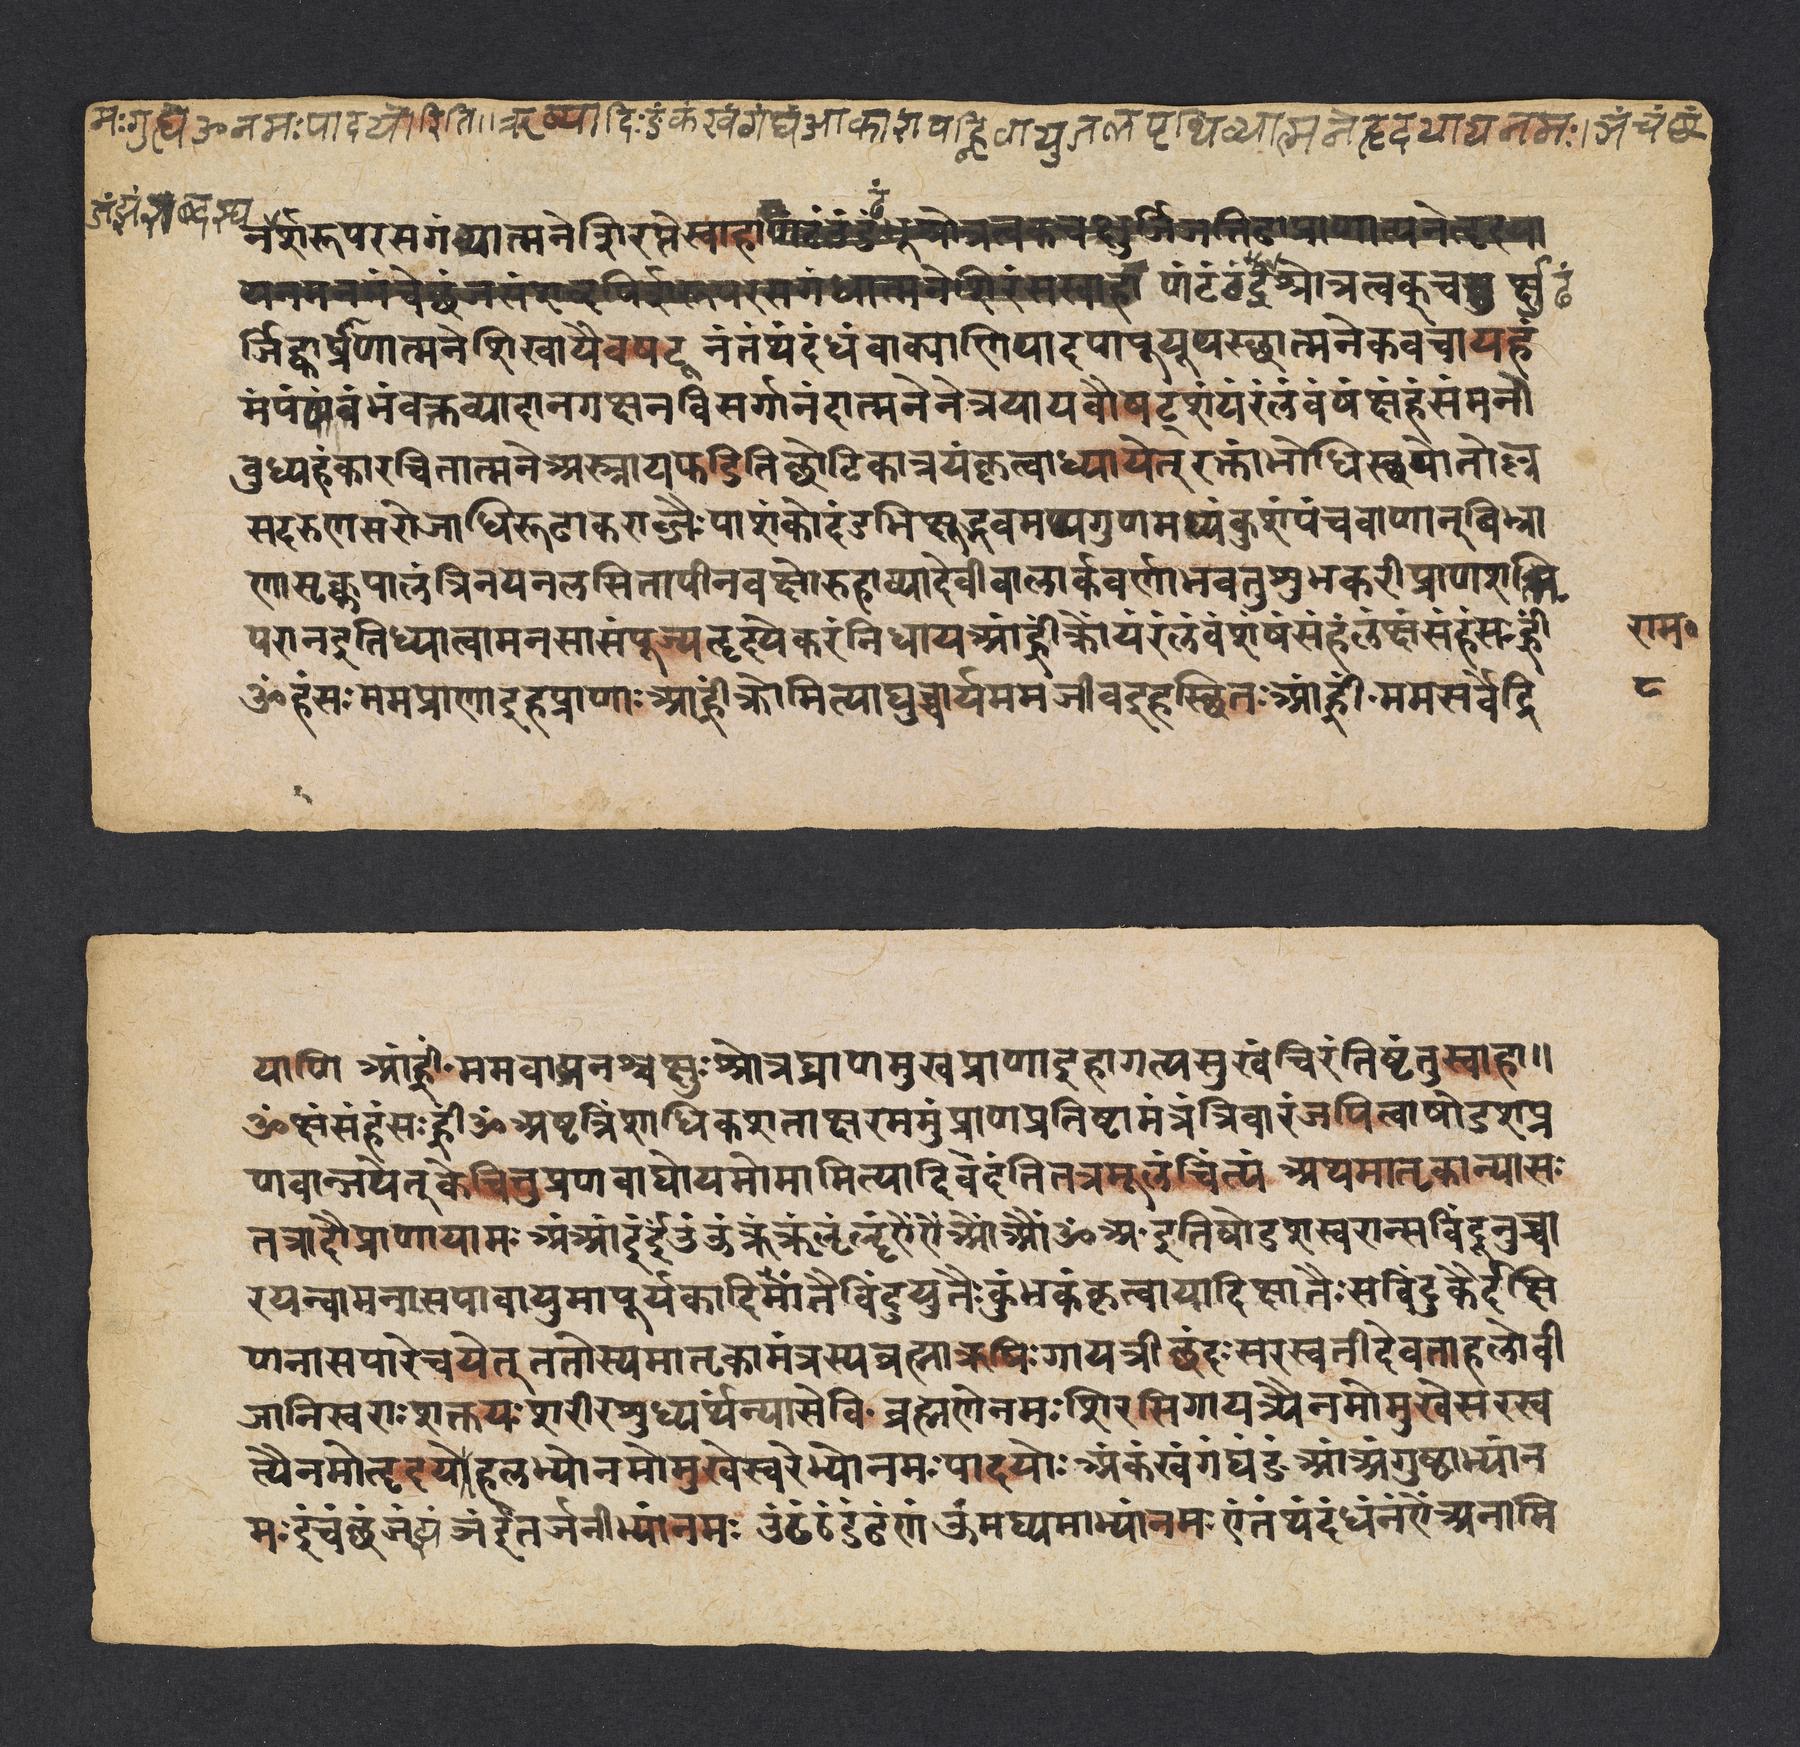 मःगुह्येॐनमःपादयोरिति।।ऋष्यादिःङंकंखंगंघंआकाशवह्निवायुजलपृथिव्यात्मनेहृदयायनमः।ञंचंछं
जंझंशब्दस्प
र्शरूपरसगंध्यात्मनेशिरसेस्वाहा
णंटंठंडं श्रोत्रत्वक्चक्षु ढं
र्जिह्वार्घ्राणात्मनेशिखायैवषट् नंतंथंदंधंवाक्पाणिपादपापूयूपस्छात्मनेकवचायहं
मंपंफंबंभंवक्तव्यादानगक्षनविसर्गानंदात्मनेनेत्रयायवौषट्शंयंरंलंवंषंक्षंहंसंमनो
वुध्यहंकारचितात्मनेअस्त्रायफडितिछोटिकात्रयंकृत्वाध्यायेत्रक्तांभोधिस्छपोतोल्ल
सदरुणसरोजाधिरूढाकराब्जैःपाशंकोदंडमिक्षूद्भवमप्यगुणमप्यंकुशंपंचबाणान्बिभ्रा
णासृक्कपालंत्रिनयनलसितापीनवक्षोरुहाढ्यादेवीबालार्कवर्णाभवतुशुभकरीप्राणशक्तिः
परानइतिध्यात्वामनसासंपूज्यहृदयेकरंनिधायआंह्रींक्रोंयंरंलंवंशंषंसंहंलंक्षंसंहंसःह्रीं
ॐहंसःममप्राणाइहप्राणाःआंह्रींक्रोमित्याद्युच्चार्यममजीवइहस्छितःआंह्रीं॰ममसर्वेंद्रि
राम॰
८
याणि आंह्रीं॰ममवाङ्मनश्चक्षुःश्रोत्रघ्राणमुखप्राणाइहागत्यसुखंचिरंतिष्टंतुस्वाहा॥
ॐक्षंसंहंसःह्रींॐअष्टत्रिंशाधिकशताक्षरममुंप्राणप्रतिष्टामंत्रंत्रिवारंजपित्वाषोडशप्र
णवान्जपेत्केचित्तुप्रणवाद्योयमोमामित्यादिवदंतितत्रमूलंचिंत्यं अथमातृकान्यासः
तत्रादौप्राणायामः अंआंइंईंउंऊंऋंॠंऌंॡंएंऐंओंऔंॐअःइतिषोडशस्वरान्सबिंदूनुच्चा
रयन्वामनासपावायुमापूर्यकादिमांतैर्विंदुयुतैःकुंभकंकृत्वायादिक्षांतैःसविंदुकैर्दक्षि
णनासपारेचयेत् ततोस्यमातृकामंत्रस्यब्रह्माऋषिःगायत्रीछंदःसरस्वतीदेवताहलोवी
जानिस्वराःशक्तयःशरीरशुध्यर्थंन्यासेवि॰ ब्रह्मणेनमःशिरसिगायत्र्यैनमोमुखेसरस्व
त्यैनमोहृदयेहलभ्योनमोमुखेस्वरेभ्योनमःपादयोः अंकंखंगंघंङंआंअंगुष्ठाभ्यांन
मःइंचंछंजंझंञंईंतर्जनीभ्यांनमः उंटंठंडंढंणंऊंमध्यमाभ्यांनमःएंतंथंदंधंनंऐंअनामि